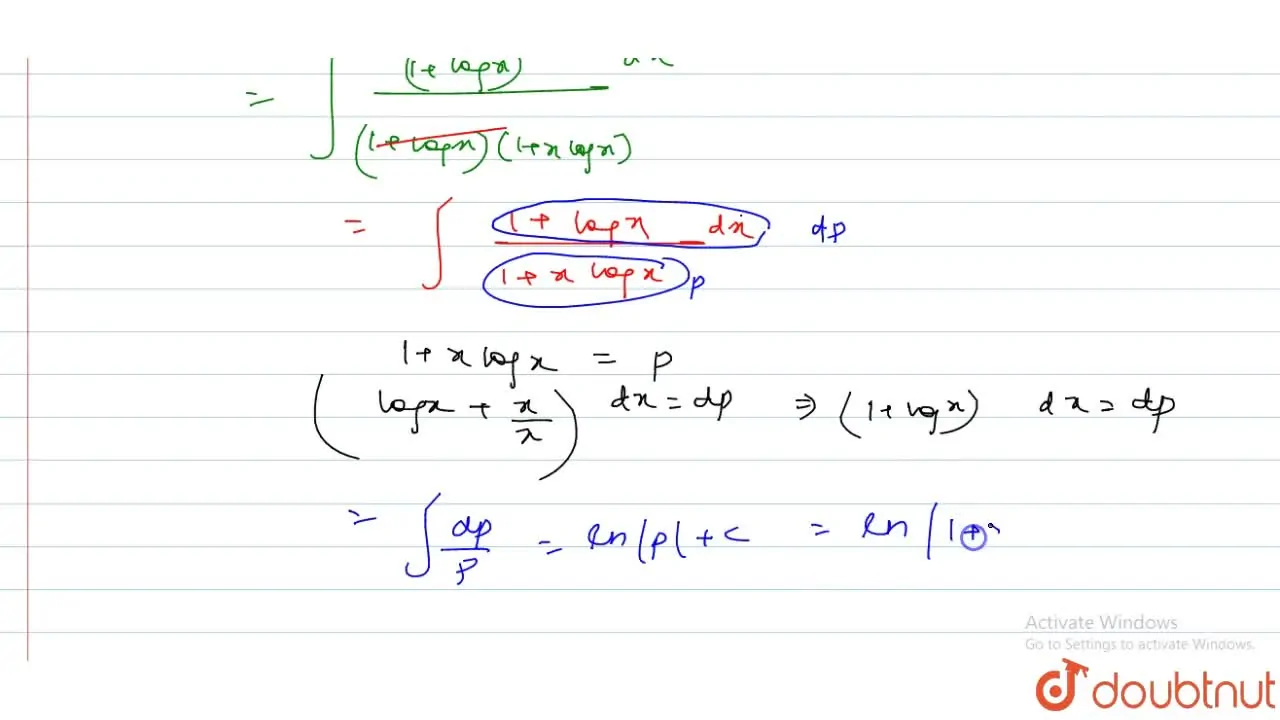 (1+ logx) dx
= ∫ ———
(1+ logx) (1+x logx)
= ∫ 1+ logx dx dp
1+ x logx p
1+ x logx = p
(logx + x/x) dx = dp ⇒ (1+ logx) dx = dp
= ∫ dp/p = ln|p|+c = ln |1+
Activate Windows
Go to Settings to activate Windows.
doubtnut